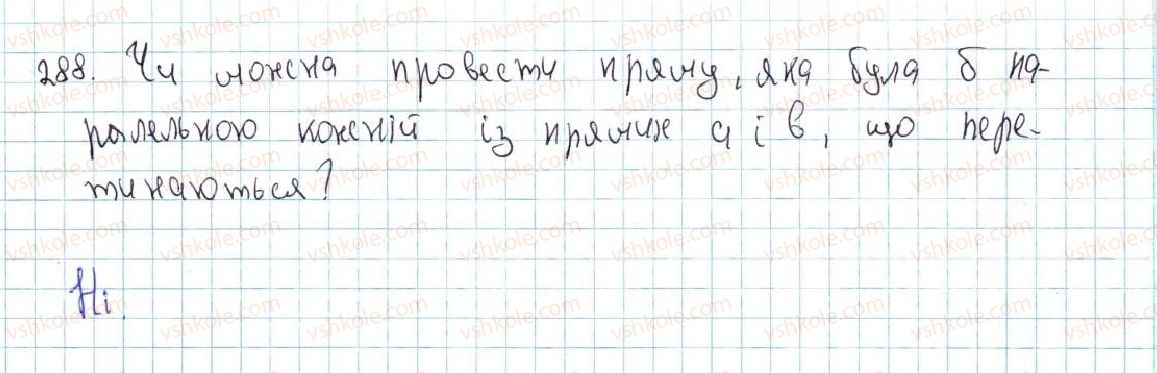 288. Чи можна провести пряму, яка була б па-
ралельною кожній із прямих a і b, що пере-
тинаються?
Ні.